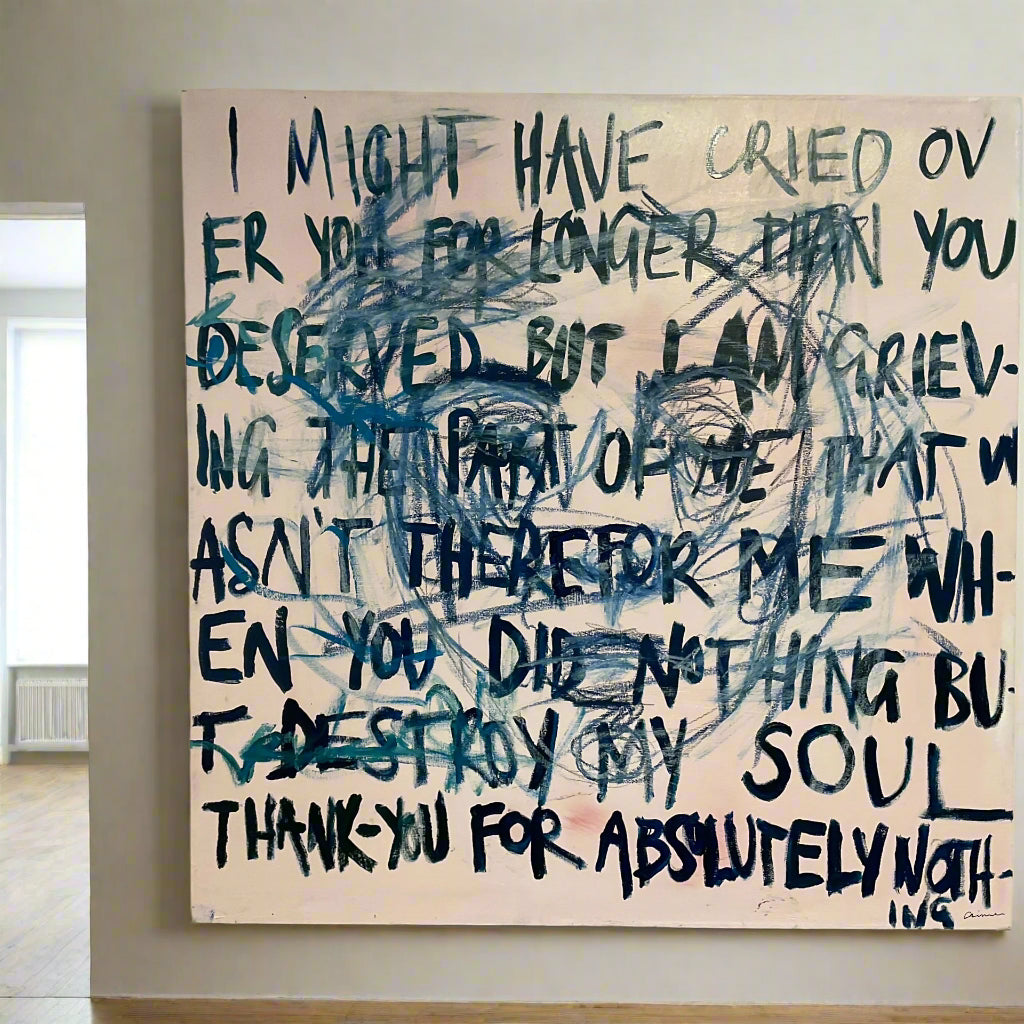 I MIGHT HAVE CRIED OV
ER YOU FOR LONGER THAN YOU
DESERVED BUT I AM GRIEV-
ING THE PART OF ME THAT W
ASN'T THERE FOR ME WH-
EN YOU DID NOTHING BU-
T DESTROY MY SOUL
THANK-YOU FOR ABSOLUTELY NOTH-
ING